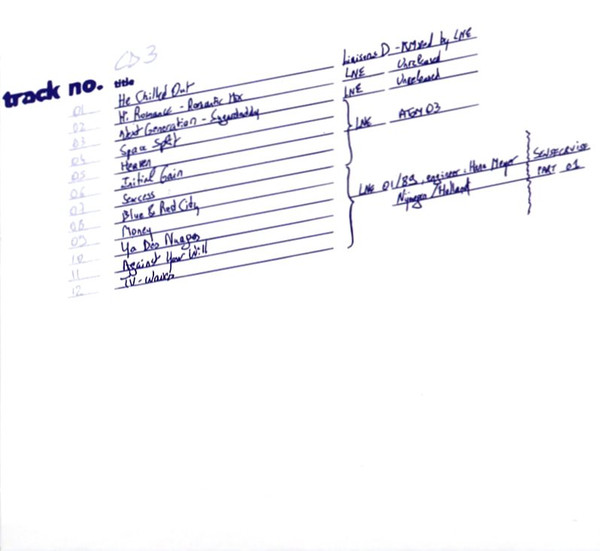 CD 3
track no. title
01 He Chilled Out Liaisons D - Remixed by LNE
02 Mr. Romance - Romantic Mix LNE Unreleased
03 Next Generation - Sugardaddy LNE Unreleased
04 Space Split
05 Heaven LNE ATOM 03
06 Initial Gain
07
08 Blue & Red City LNE 01/89, engineer, Hans Meyer SENSECRUISE
09 Money Nijmegen / Holland PART 01
10 Ya Dos
11 Against Your Will
12 TV-Waves